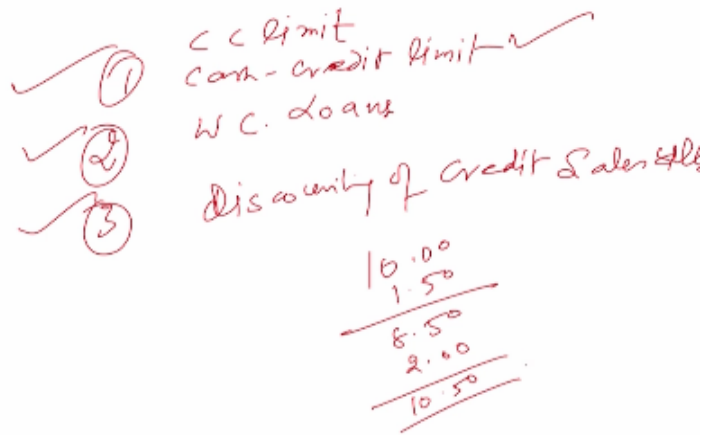 CC limit
① Cash-credit limit
② W C. Loans
③ Discounting of Credit Sales
10.00
1.50
8.50
2.00
10.50